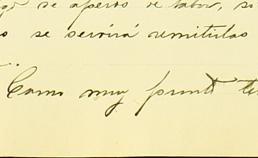 se aperos de labor, s
se servirá remitirlas
Como muy pronto te